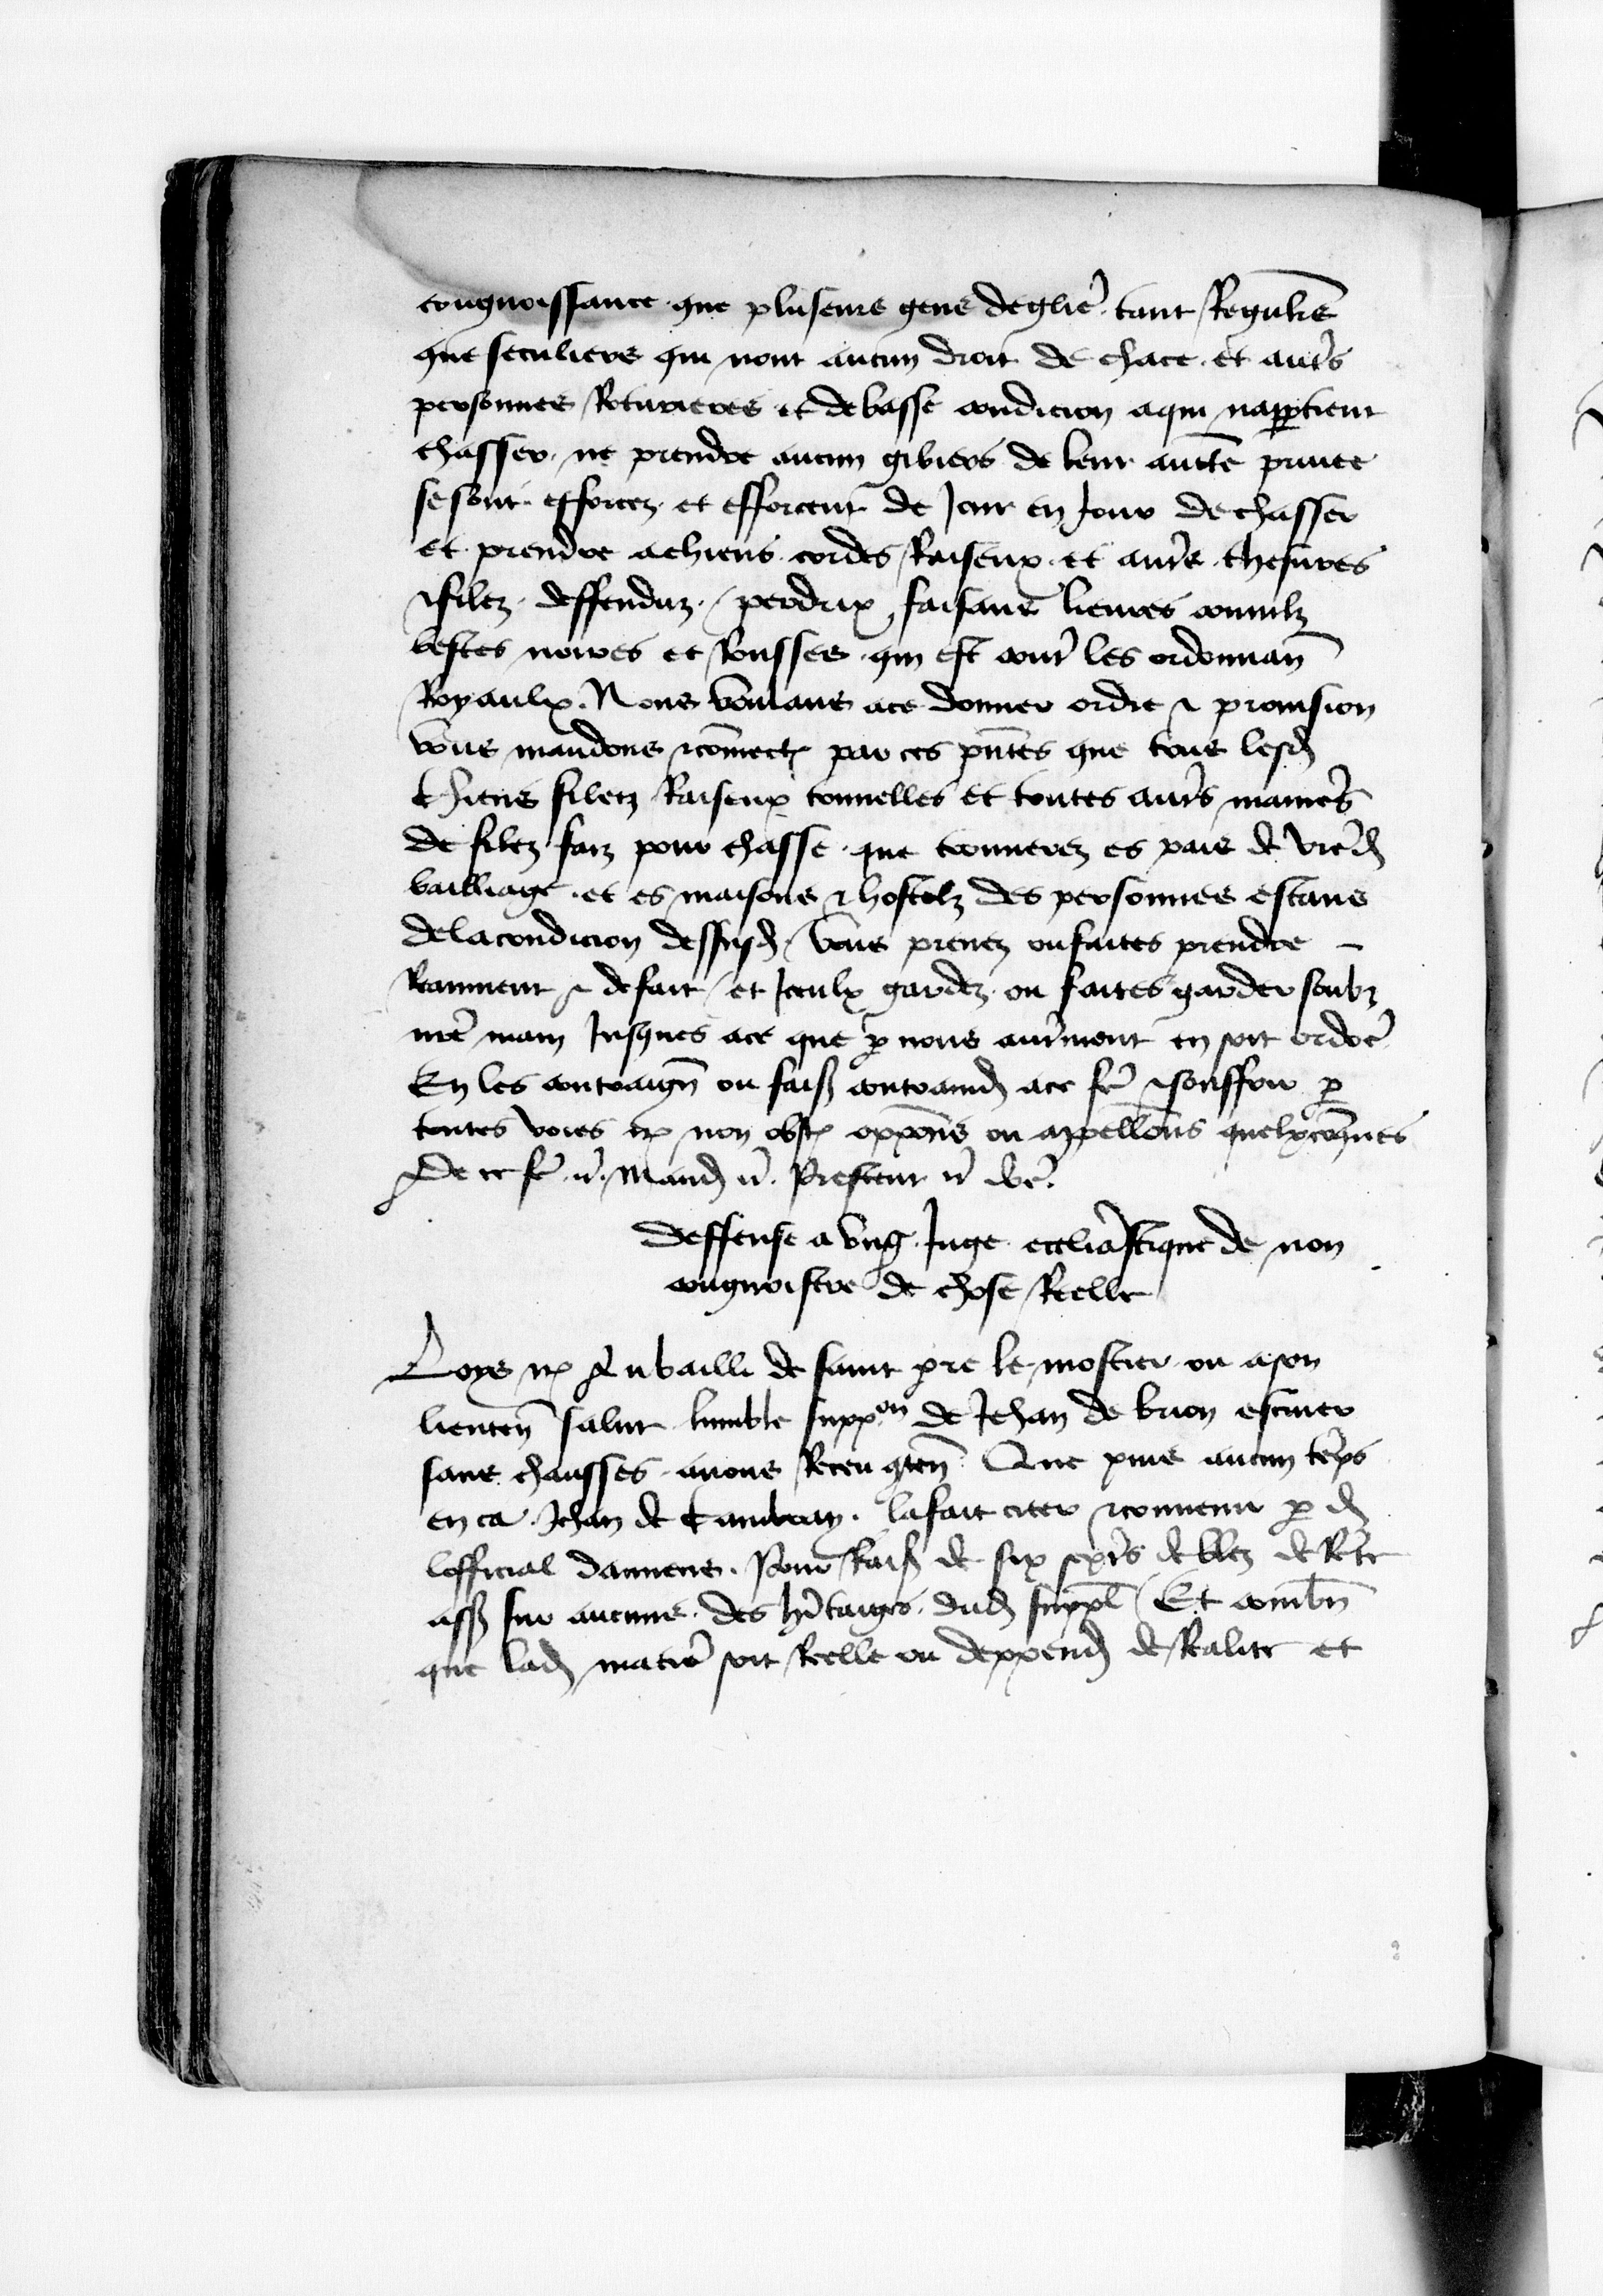 congnoissance que pluseurs gens deglie tant Reguliers
que seculiers qui nont aucun droit de chace et autrs
personnes Roturieres et de basse condicion aqui nappartient
chasser ne prendre aucun gibiers de leur auctte privee
se sont efforcez et efforcent de Jour en Jour de chasser
et prendre a chiens cordes Raiseux et autrs thesures
& filez deffenduz perdrix faisans lievres connilz
bestes noires et Rousses qui est contr les ordonnan
Royaulx Nous voulans ace donner ordre & provision
vous mandons & commect par ces pntes que tous lesd
chiens filetz Raiseux tonnelles et toutes autrs manies
de filez faiz pour chasse que trouverez es pais de vred
bailliage et es maisons & hostelz des personnes estans
dela condicion dessusd vous prenez ou faites prendre
Reaument & defait et Iceulx gardez ou faites garder soubz
nre main Jusques ace que p nous autrment en soit ordoe
En les contraign ou fais contraind ace fe & souffrir p
toutes voies &c non obst oppons ou appellons quelxconques
De ce fe &c Mand &c Prestent &c
Deffense a ung Juge eccliastique de non
congnoistre de chose Reelle
Loys &c Au bailli de saint pre le mostier ou a son
lieuten salut lumble suppon de Jehan de brion escuier
sans chausses avons Receu qten Que puis aucun temps
en ca Jehan de Cambray la fait citer & convenir p d
lofficial dauuens Pour Rais de six sextrs de blez de Rete
ass sur aucuns des heritaiges dud suppl Et combn
que lad matie soit Reelle ou deppend de Realite et